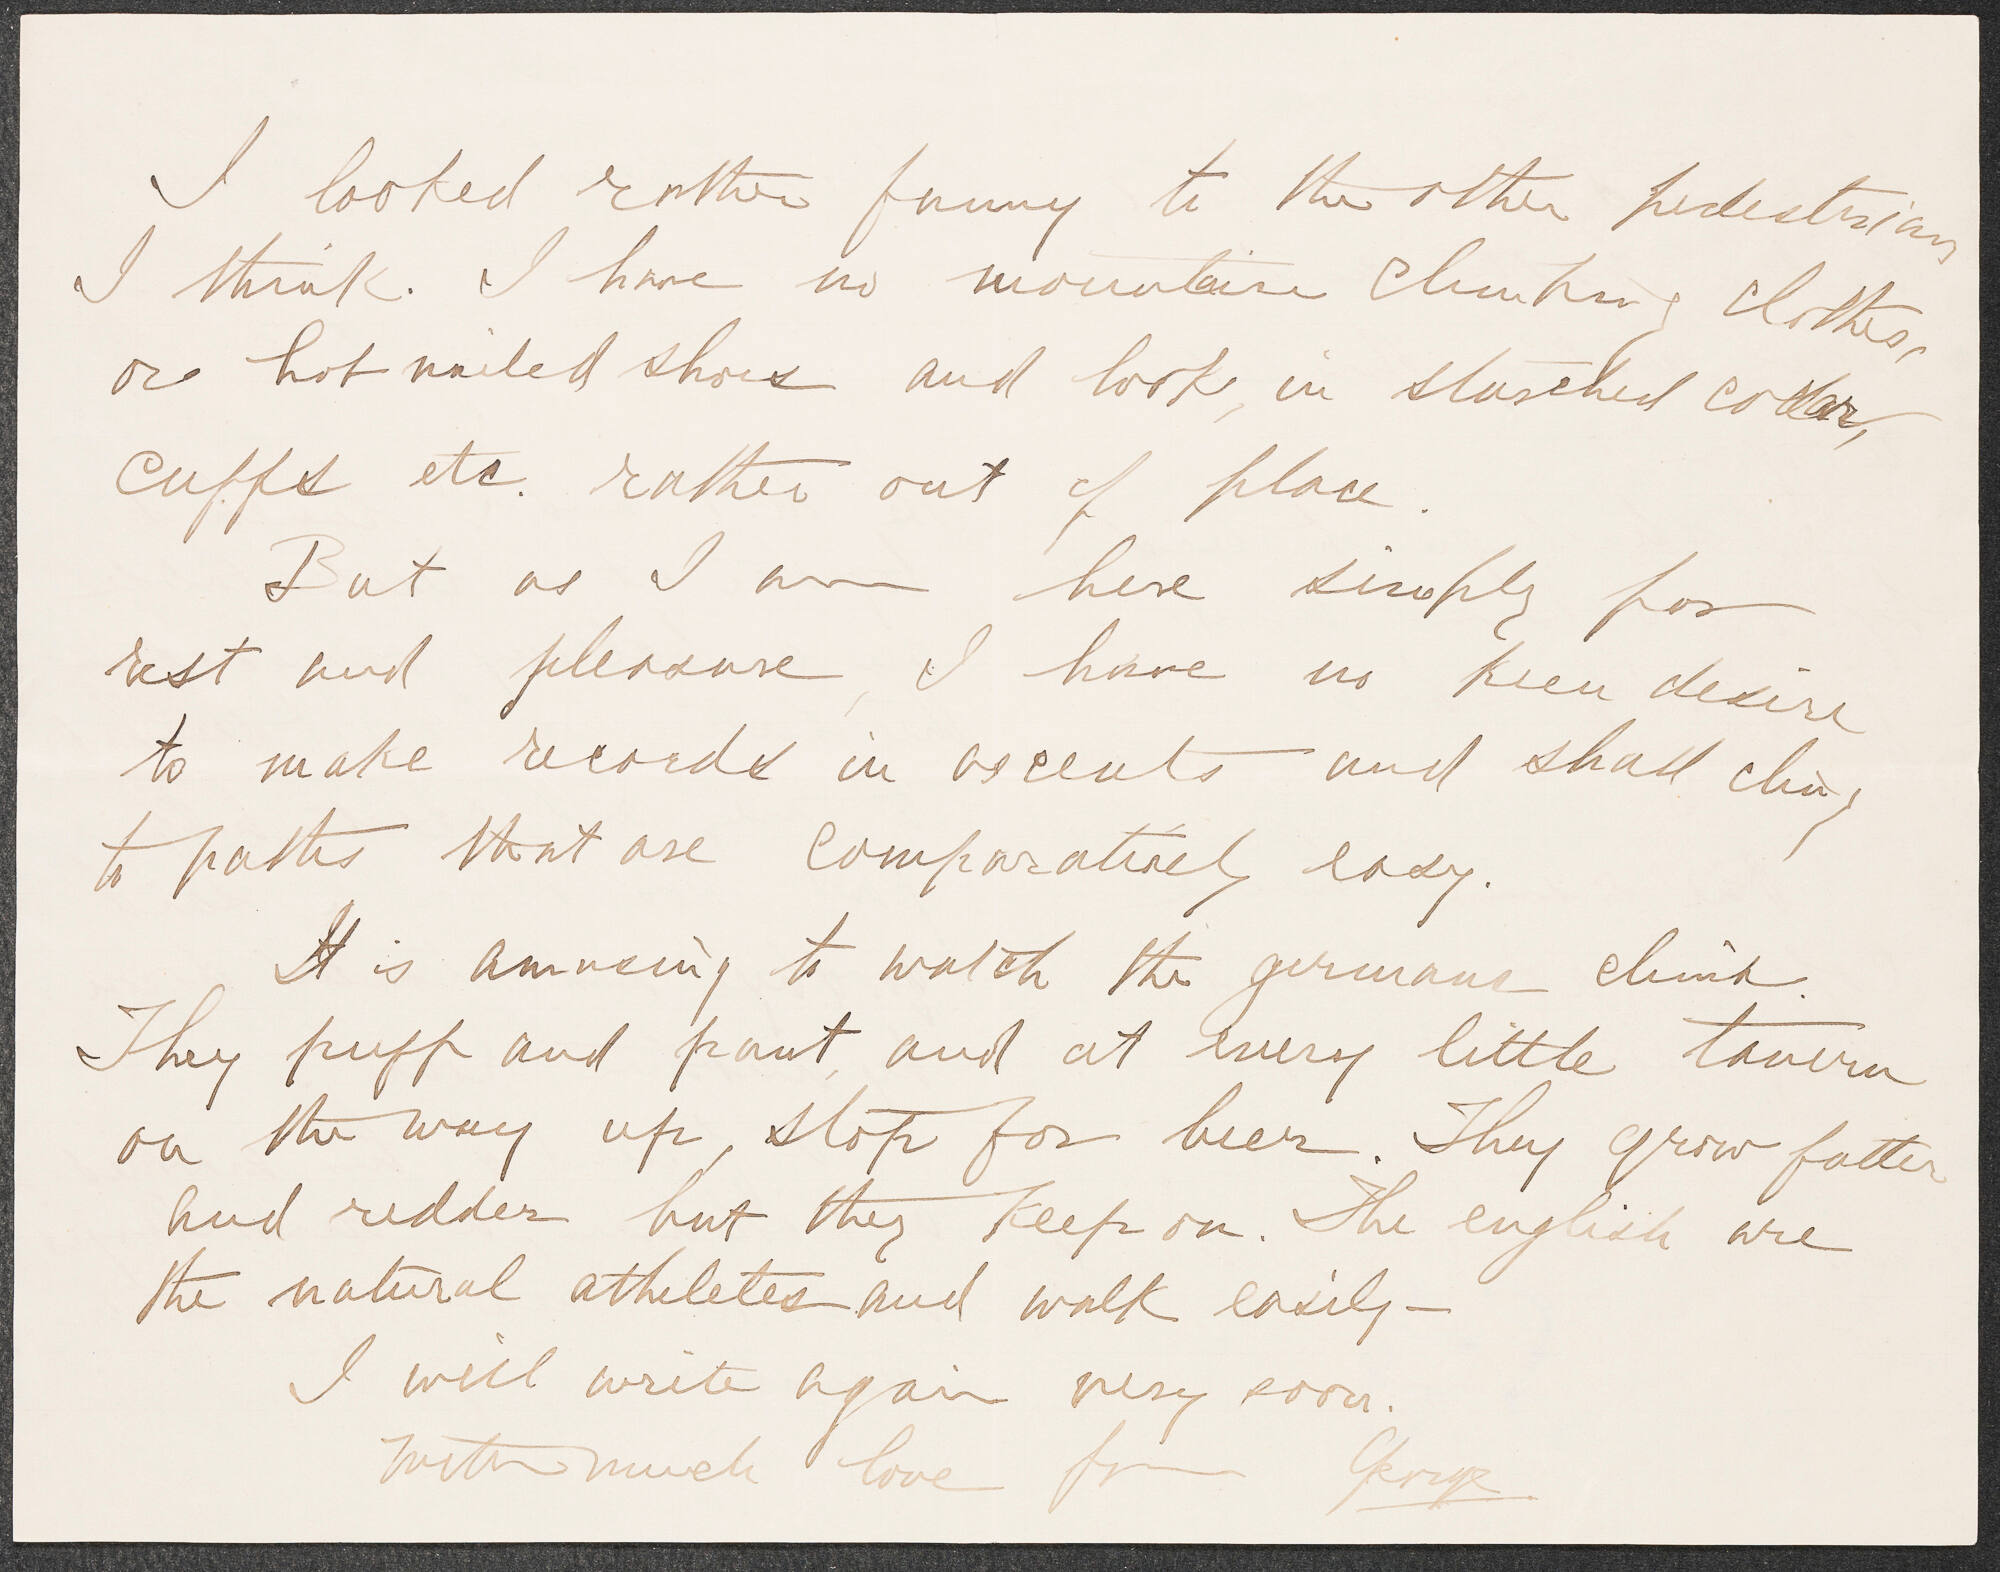 I looked rather funny to the other pedestrians
I think. I have no mountain climbing clothes,
or hot nailed shoes and look, in starched collar,
cuffs etc. rather out of place.
But as I am here simply for
rest and pleasure, I have no keen desire
to make records in ascents and shall cling
to paths that are comparatively easy.
It is amusing to watch the germans climb.
They puff and pant, and at every little tavern
on the way up, stop for beer. They grow fatter
and redder but they keep on. The english are
the natural atheletes and walk easily—
I will write again very soon.
With much love from George